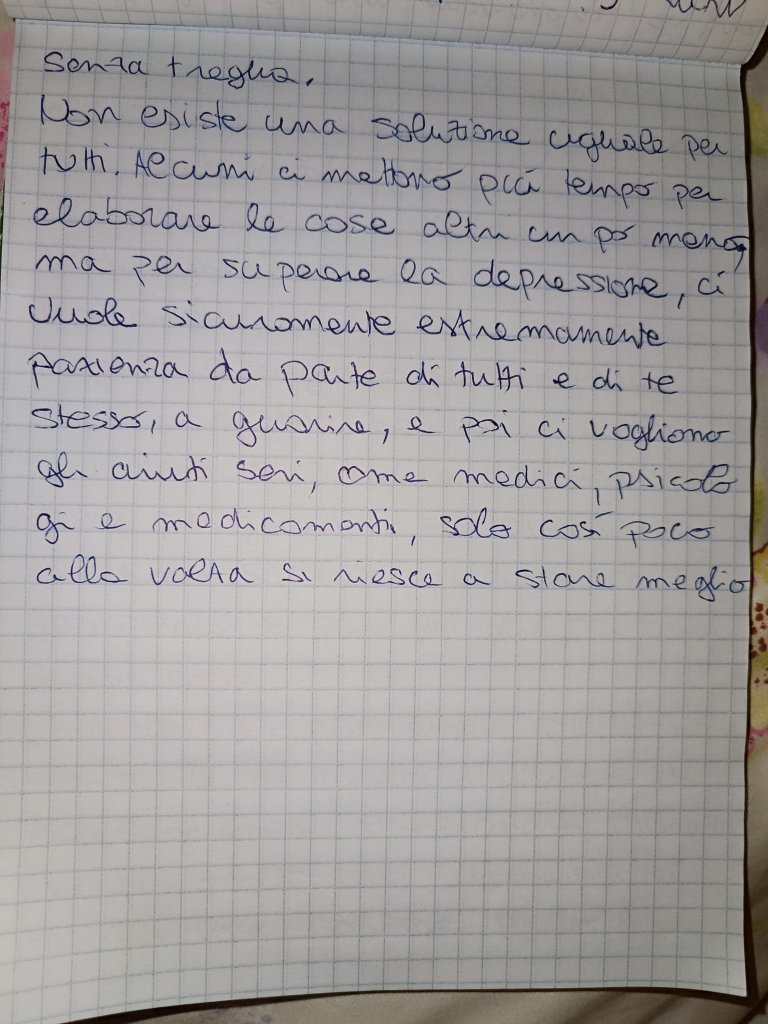 senza tregua.
Non esiste una soluzione uguale per
tutti. Alcuni ci mettono più tempo per
elaborare le cose altri un po meno,
ma per superare la depressione, ci
vuole sicuramente estremamente
pazienza da parte di tutti e di te
stesso, a guarire, e poi ci vogliono
gli aiuti seri, come medici, psicolo
gi e medicamenti, solo così poco
alla volta si riesce a stare meglio